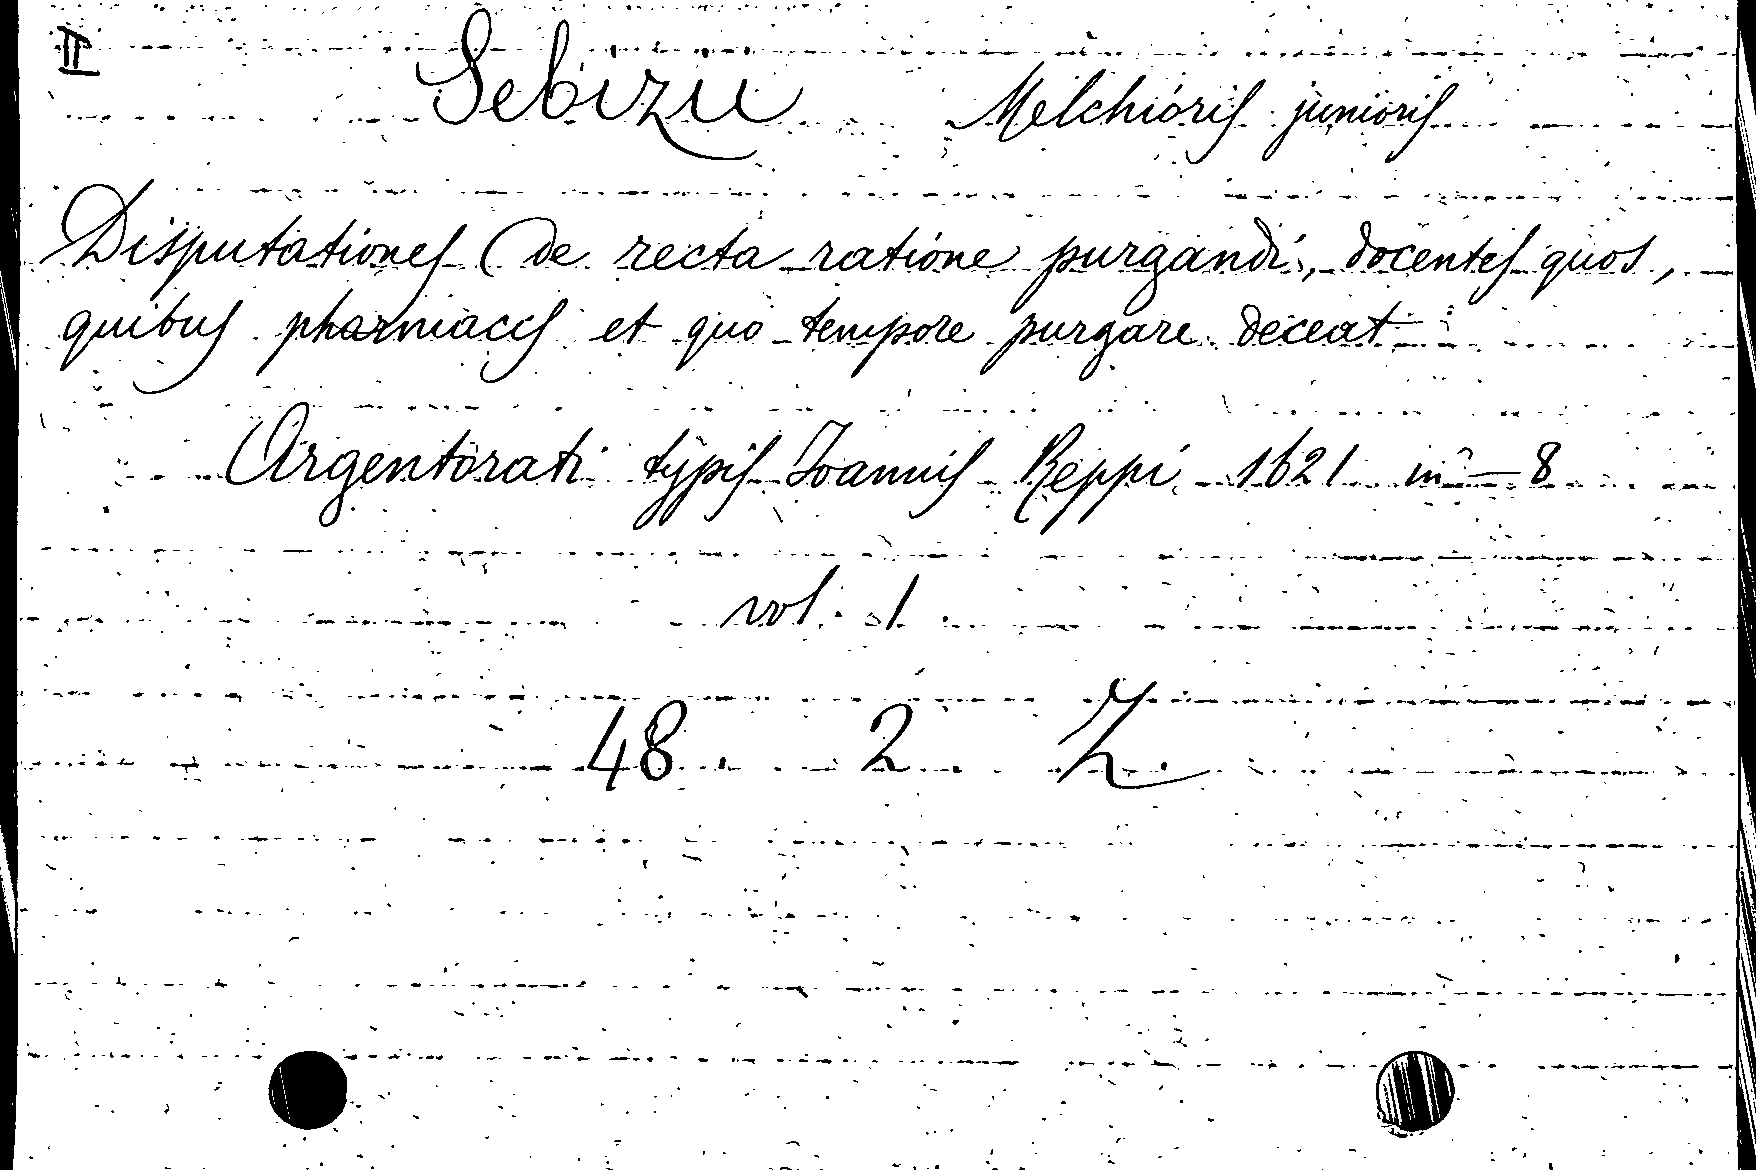 II
Sebizii Melchioris junioris
Disputationes de recta ratione purgandi, docentes quos,
quibus pharmacis et quo tempore purgare deceat
Argentorati typis Joannis Reppi 1621 in-8
vol. 1
48. 2 Z.